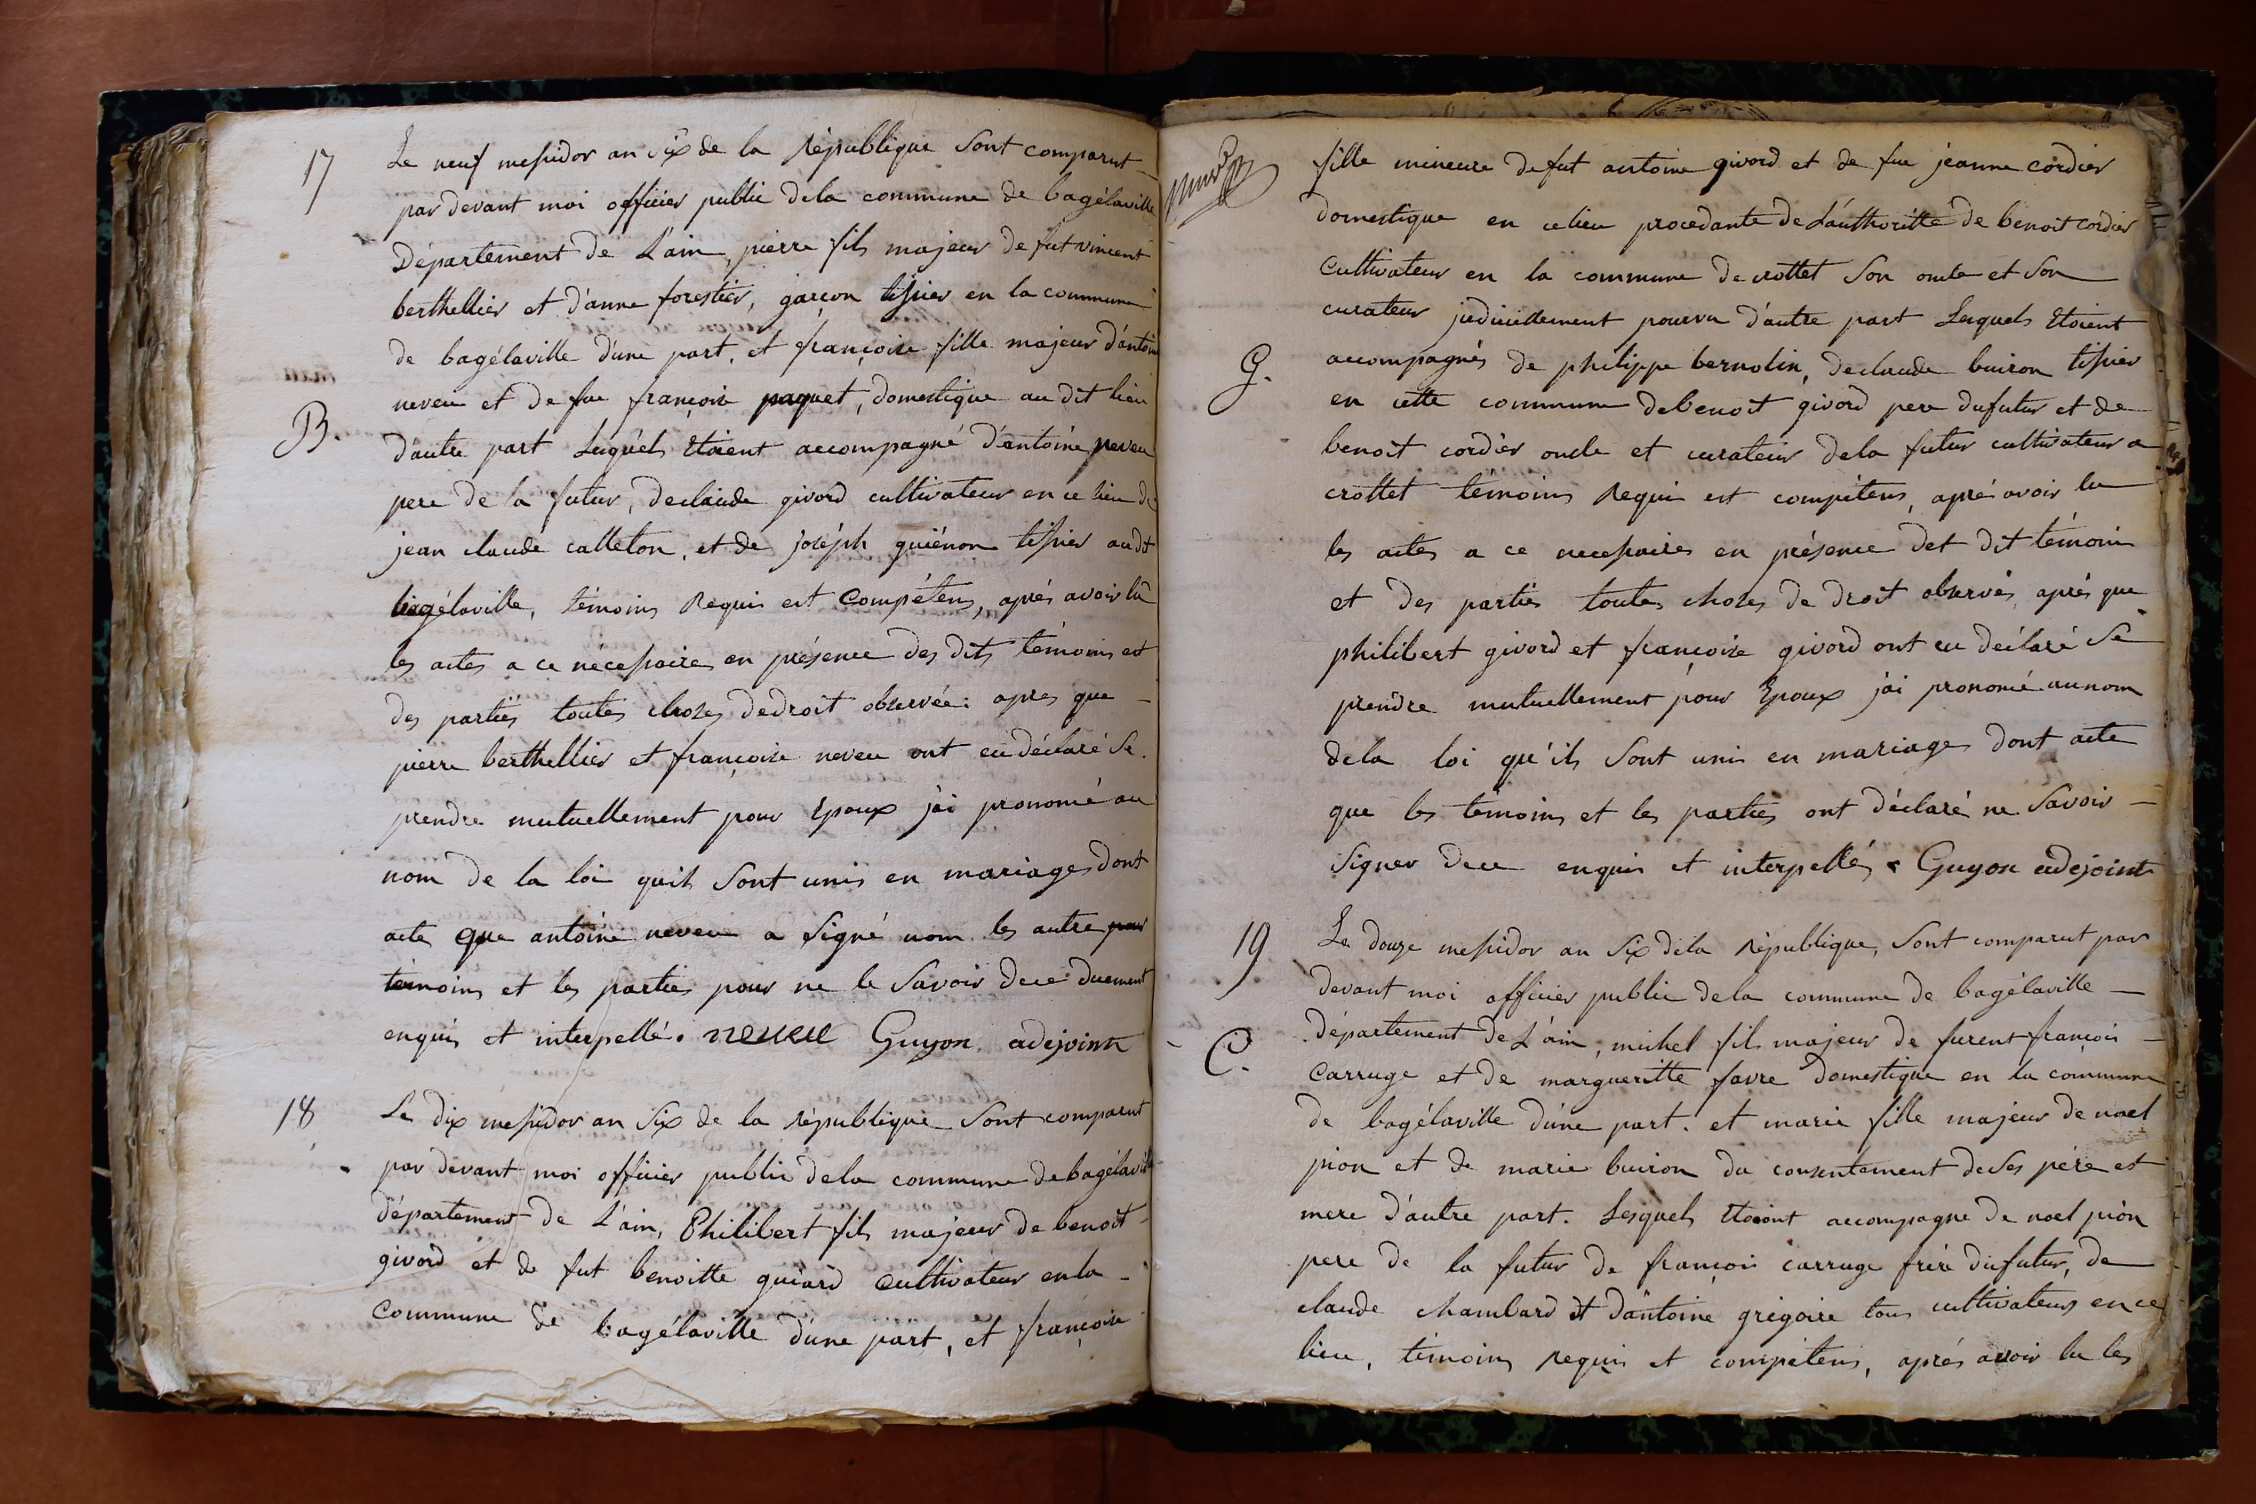 17
Le neuf messidor an Six de la République Sont comparut
par devant moi officier public dela commune de bagélaville
Département de L'ain, pierre fils majeur de fut vincent
berthellier et d'anne forestier, garçon tissier en la commune
de bagélaville d'une part, et françoise fille majeur d'antoine
neveu et de fue françoise paquet, domestique au dit lieu
B.
d'autre part Lesquels Etoient accompagné d'antoine neveu
pere de la futur, declaude givord cultivateur en ce lieu de
jean claude calleton, et de joséph guiénon tissier audt
bagélaville, témoins Requis est Compétens, aprés avoir lû
les actes a ce nécessaires en présence des dits témoins et
des parties toutes choses dedroit observée: apres que
pierre berthellier et françoise neveu ont eu déclaré Se
prendre mutuellement pour Epoux j'ai prononcé au
nom de la loi quils Sont unis en mariages dont
acte que antoine neveu a signé nom les autre pour
témoins et les parties pour ne le Savoir dece duement
enquis et interpellé. neveu Guyon adejoint
18
Le dix messidor an Six de la république Sont comparut
par devant moi officier public dela commune de bagélaville
département de L'ain, Philibert fils majeur de benoit
givord et de fut benoitte guiard cultivateur en la
commune de bagélaville d'une part, et françoise
fille mineure de fut antoine givord et de fue jeanne cordier
domestique en ce lieu procedante de L'authoritté de benoit cordier
cultivateur en la commune de crottet Son oncle et Son
curateur judiciellement pourvu d'autre part Lesquels Etoient
G.
accompagnés de philippe bernolin, declaude buiron tissier
en cette commune debenoit givord pere dufutur et de
benoit cordier oncle et curateur dela futur cultivateur a
crottet témoins Requis est compétens, aprés avoir lu
les actes a ce necessaires en présence det dit témoins
et des parties toutes choses de droit observés, aprés que
philibert givord et françoise givord ont eu déclaré Se
prendre mutuellement pour Epoux j'ai prononcé au nom
dela loi qu'ils Sont unis en mariages dont acte
que les témoins et les parties ont déclaré ne Savoir
Signer dece enquis et interpellés Guyon adejoint
19
Le douze messidor an Six déla république, Sont comparut par
devant moi officier public dela commune de bagélaville
C.
département de L'ain, michel fils majeur de furent françois
Carruge et de margueritte favre domestique en la commune
de bagélaville d'une part. et marie fille majeur de noel
pion et de marie buiron du consentement deses pére et
mere d'autre part. Lesquels Etoient accompagne de noel pion
pere de la futur de françois carruge frére dufutur, de
claude chambard et d'antoine grégoire tous cultivateurs ence
lieu, témoins requis et compétens, aprés avoir lu les